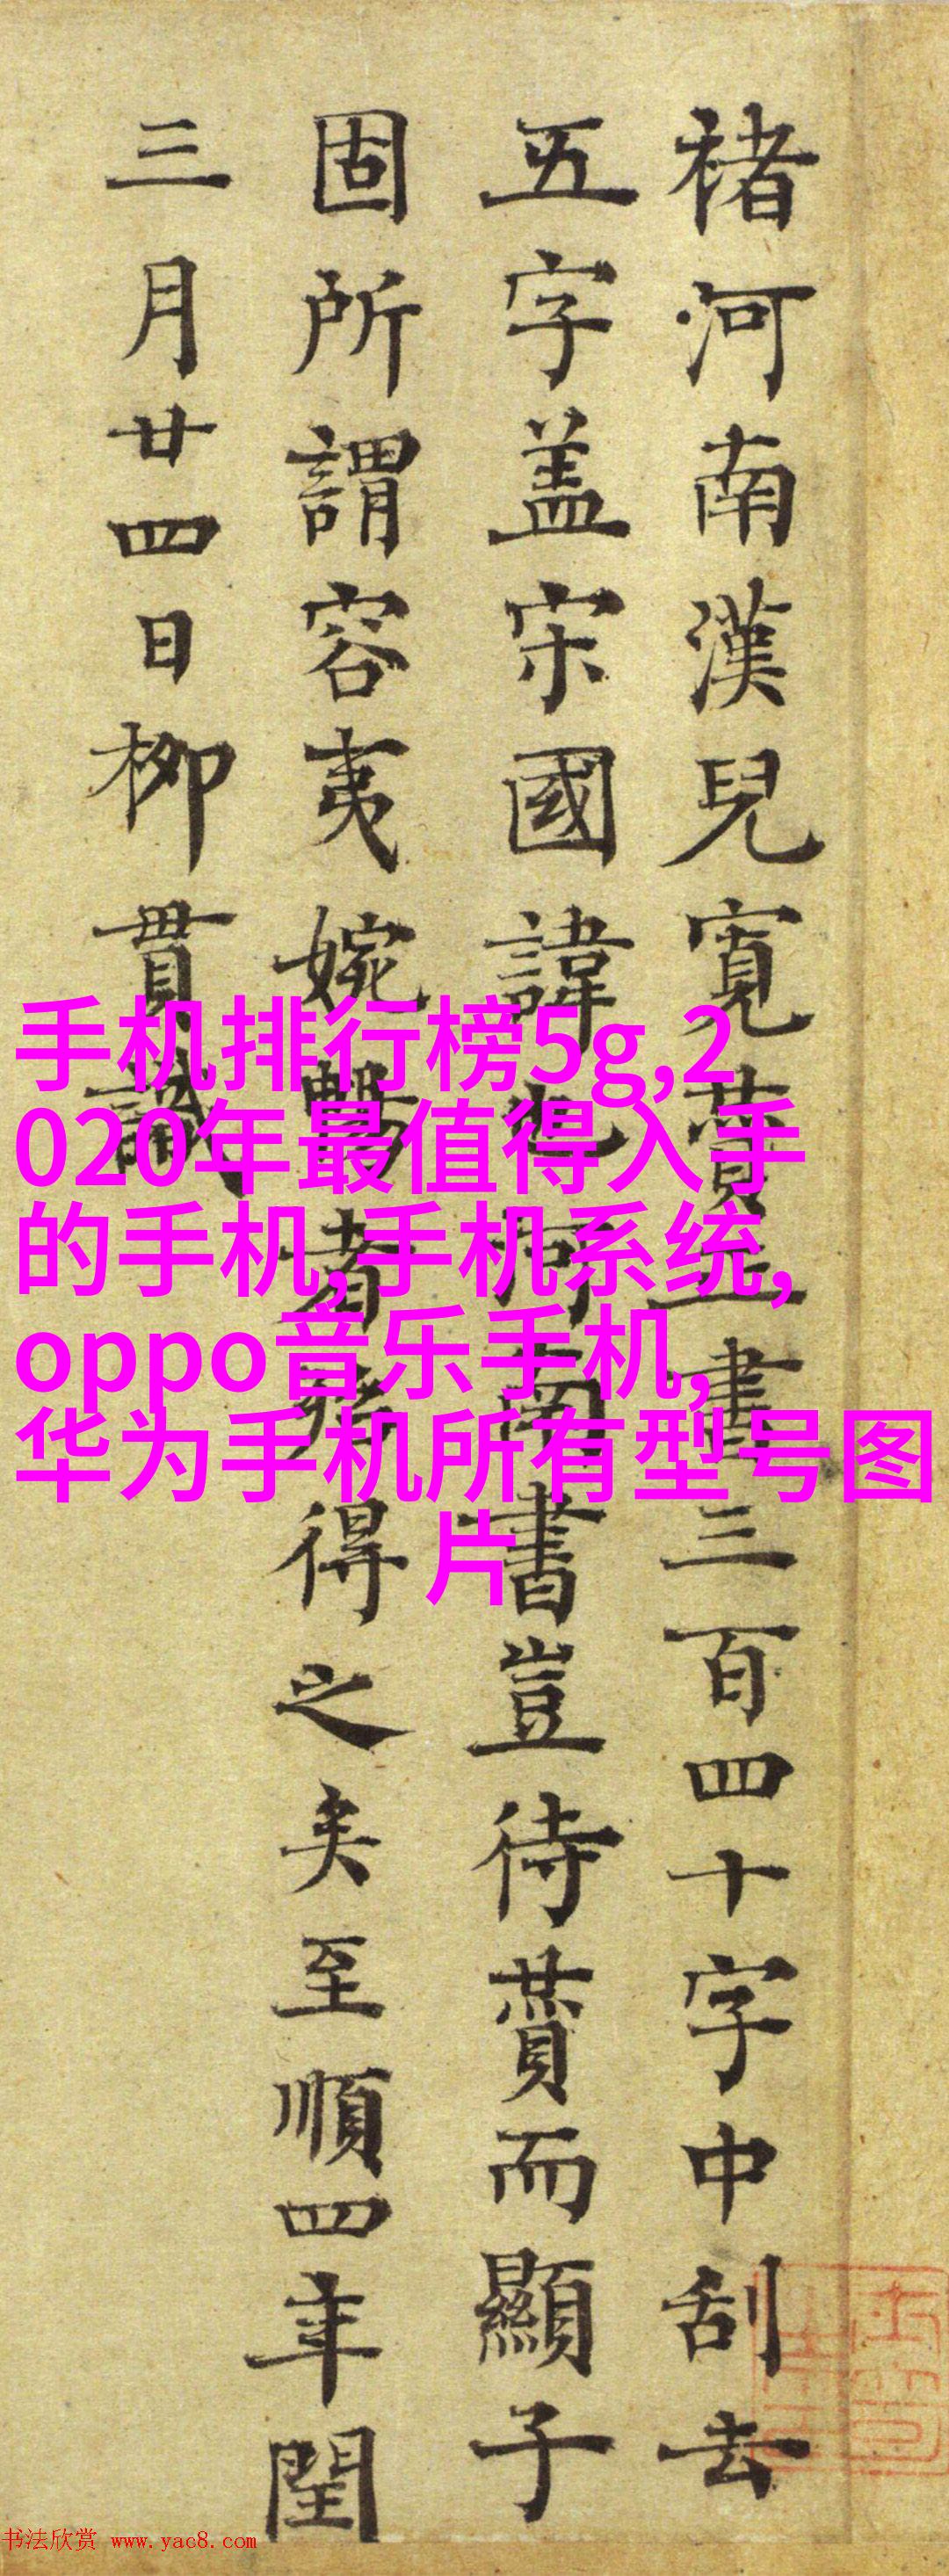 褚河南漢兒寬賛正書三百四十字中刮去
五字盖宋國諱也河南書豈待賛而顯子
固所謂容夷婉暢者殆得之矣至順四年閏
三月廿四日柳貫識
手机排行榜5g,2
020年最值得入手
的手机,手机系统,
oppo音乐手机,
华为手机所有型号图
片
书法欣赏 www.yac8.com